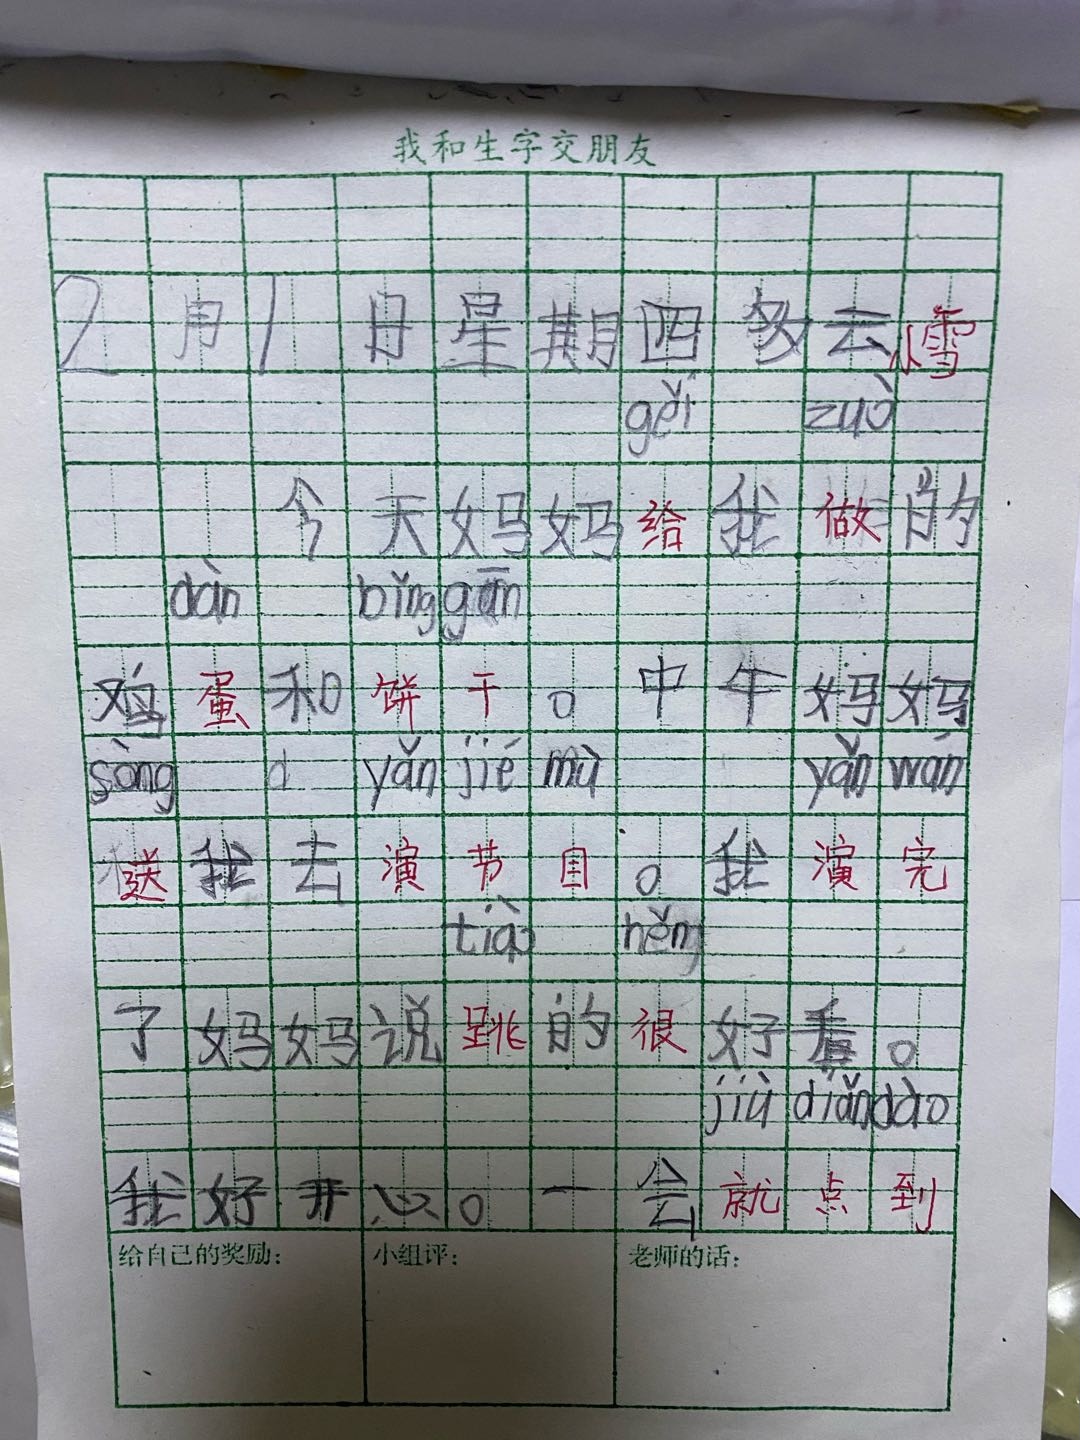 我和生字交朋友
2月1日星期四多云雪
gěi zuò
今天妈妈给我做的
dàn bǐng gān
鸡蛋和饼干。中午妈妈
sòng d yǎn jié mù yǎn wán
送我去演节目。我演完
tiào hěng
了妈妈说跳的很好看。
jiù diǎn dào
我好开心。一会就点到
给自己的奖励: 小组评: 老师的话: